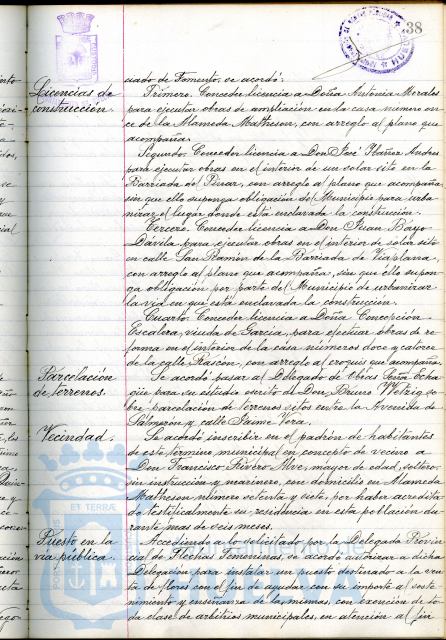 38
Licencias de
construcción.
cuado de Fomento, se acordó:
Primero. Conceder licencia a Doña Antonia Morales
para ejecutar obras de ampliación en la casa número on-
ce de la Alameda Matheson, con arreglo al plano que
acompaña.
Segundo. Conceder licencia a Don José Ibañez Andres
para ejecutar obras en el interior de un solar sito en la
Barriada de Pinar, con arreglo al plano que acompaña,
sin que ello suponga obligación de Municipio para urba-
nizar el lugar donde esta enclavada la construcción.
Tercero. Conceder licencia a Don Juan Bayo
Dávila para ejecutar obras en el interior de solar sito
en calle San Ramón de la Barriada de Viaplana,
con arreglo al plano que acompaña, sin que ello supon-
ga obligación por parte del Municipio de urbanizar
la via en que está enclavada la construcción.
Cuarto. Conceder licencia a Doña Concepción
Escalera, viuda de Garcia, para efectuar obras de re-
forma en el interior de la casa números doce y catorce
de la calle Rascón, con arreglo al croquis que acompaña.
Parcelación
de terrenos.
Se acordó pasar al Delegado de Obras Señor
que para su estudio escrito de Don Bruno Wetzig so-
bre parcelación de terrenos sitos entre la Avenida de
Salmerón y calle Jaime Vera.
Vecindad.
Se acordó inscribir en el padrón de habitantes
de este término municipal en concepto de vecino a
Don Francisco Rivero mayor de edad, soltero,
sin instrucción y marinero, con domicilio en Alameda
Matheson número setenta y siete, por haber acredita-
do testificalmente su residencia en esta población du-
rante mas de seis meses.
Puesto en la
via pública.
Accediendo a lo solicitado por la Delegada Provin-
cial de Flechas Femeninas, se acordó autorizar a dicha
Delegación para instalar un puesto destinado a la ven-
ta de flores con el fin de ayudar con su importe al soste-
nimiento y enseñanza de las mismas, con exención de to-
da clase de arbitrios municipales, en atención al fin